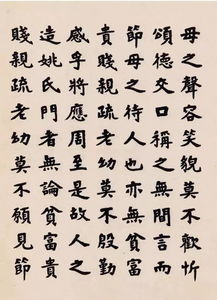 母之聲容笑貌莫不歡忻
頌德交口稱之無間言而
節母之待人也亦無貧富
貴賤親疏老幼莫不殷勤
感孚將應周至是故人之
造姚氏門者無論貧富貴
賤親疏老幼莫不願見節